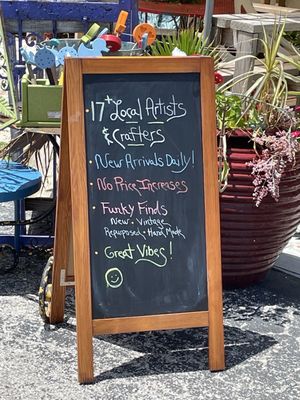 17+ Local Artists
& Crafters
New Arrivals Daily!
No Price Increases
Funky Finds
New · Vintage
Repurposed · Hand Made
Great Vibes!